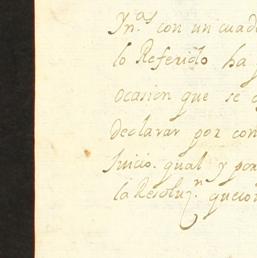 Yn.^as con un cuad
lo Referido ha
ocasion que se
declarar por con
Juicio. qual y por
la Resoluz.^n que